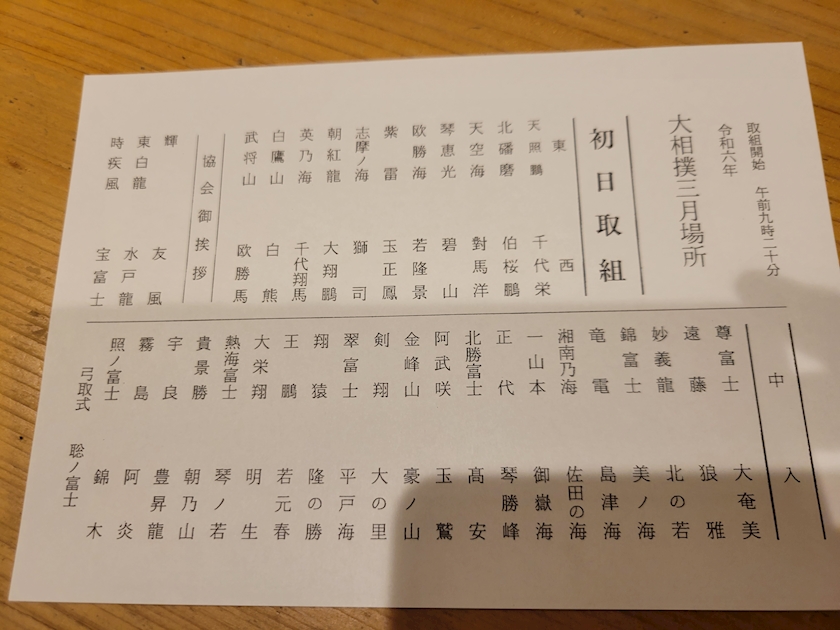 取組開始 午前九時二十分
令和六年
大相撲三月場所
初日取組
東 西
天照鵬 千代栄
北磻磨 伯桜鵬
天空海 對馬洋
琴恵光 碧山
欧勝海 若隆景
紫雷 玉正鳳
志摩ノ海 獅司
朝紅龍 大翔鵬
英乃海 千代翔馬
白鷹山 白熊
武将山 欧勝馬
協会御挨拶
輝 友風
東白龍 水戸龍
時疾風 宝富士
中入
尊富士 大奄美
遠藤 狼雅
妙義龍 北の若
錦富士 美ノ海
竜電 島津海
湘南乃海 佐田の海
一山本 御嶽海
正代 琴勝峰
北勝富士 髙安
阿武咲 玉鷲
金峰山 豪ノ山
剣翔 大の里
翠富士 平戸海
翔猿 隆の勝
王鵬 若元春
大栄翔 明生
熱海富士 琴ノ若
貴景勝 朝乃山
宇良 豊昇龍
霧島 阿炎
照ノ富士 錦木
弓取式 聡ノ富士